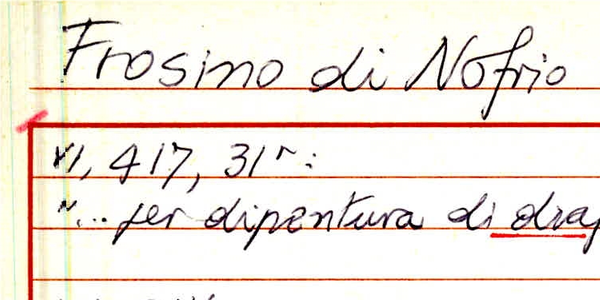 Frosino di Nofrio
VI, 417, 31r:
"... per dipentura di